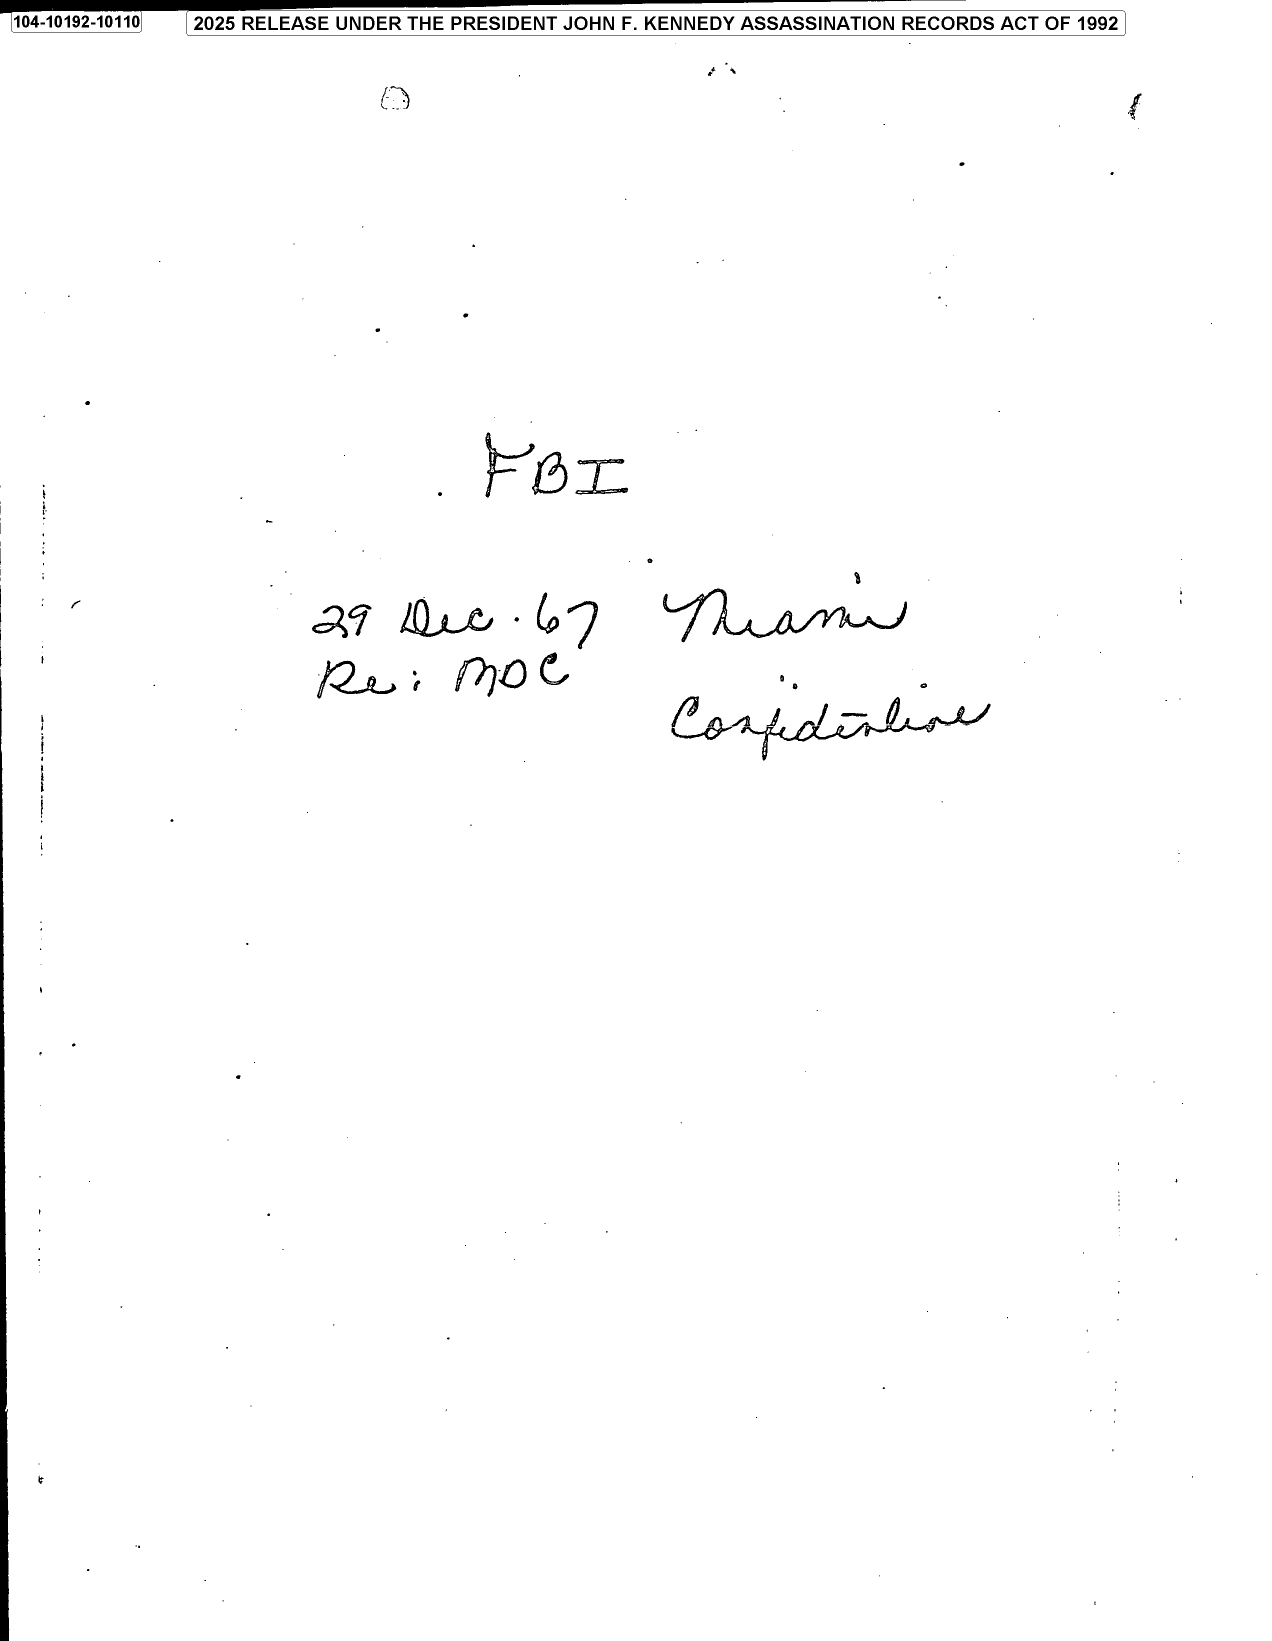 104-10192-10110
2025 RELEASE UNDER THE PRESIDENT JOHN F. KENNEDY ASSASSINATION RECORDS ACT OF 1992
FBI
29 Dec. 67 Miami
Re: MDC
Confidential